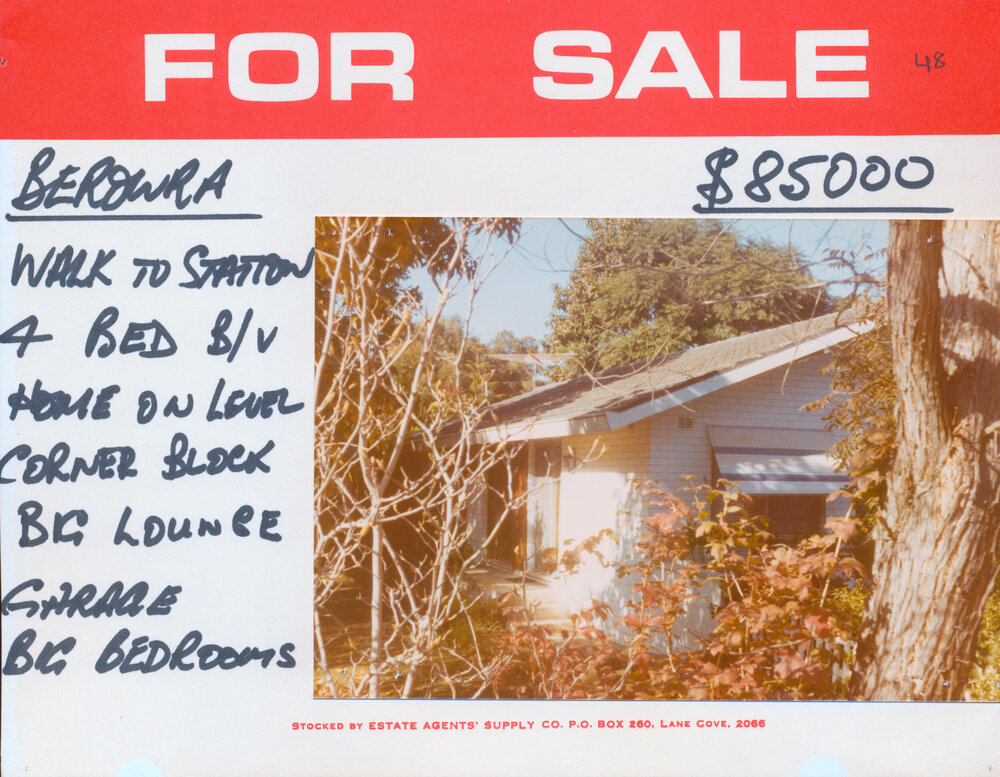 FOR SALE
48
BEROWRA
$85000
WALK TO STATION
4 BED B/V
HOME ON LEVEL
CORNER BLOCK
BIG LOUNGE
GARAGE
BIG BEDROOMS
STOCKED BY ESTATE AGENTS' SUPPLY CO. P.O. BOX 260, LANE COVE, 2066